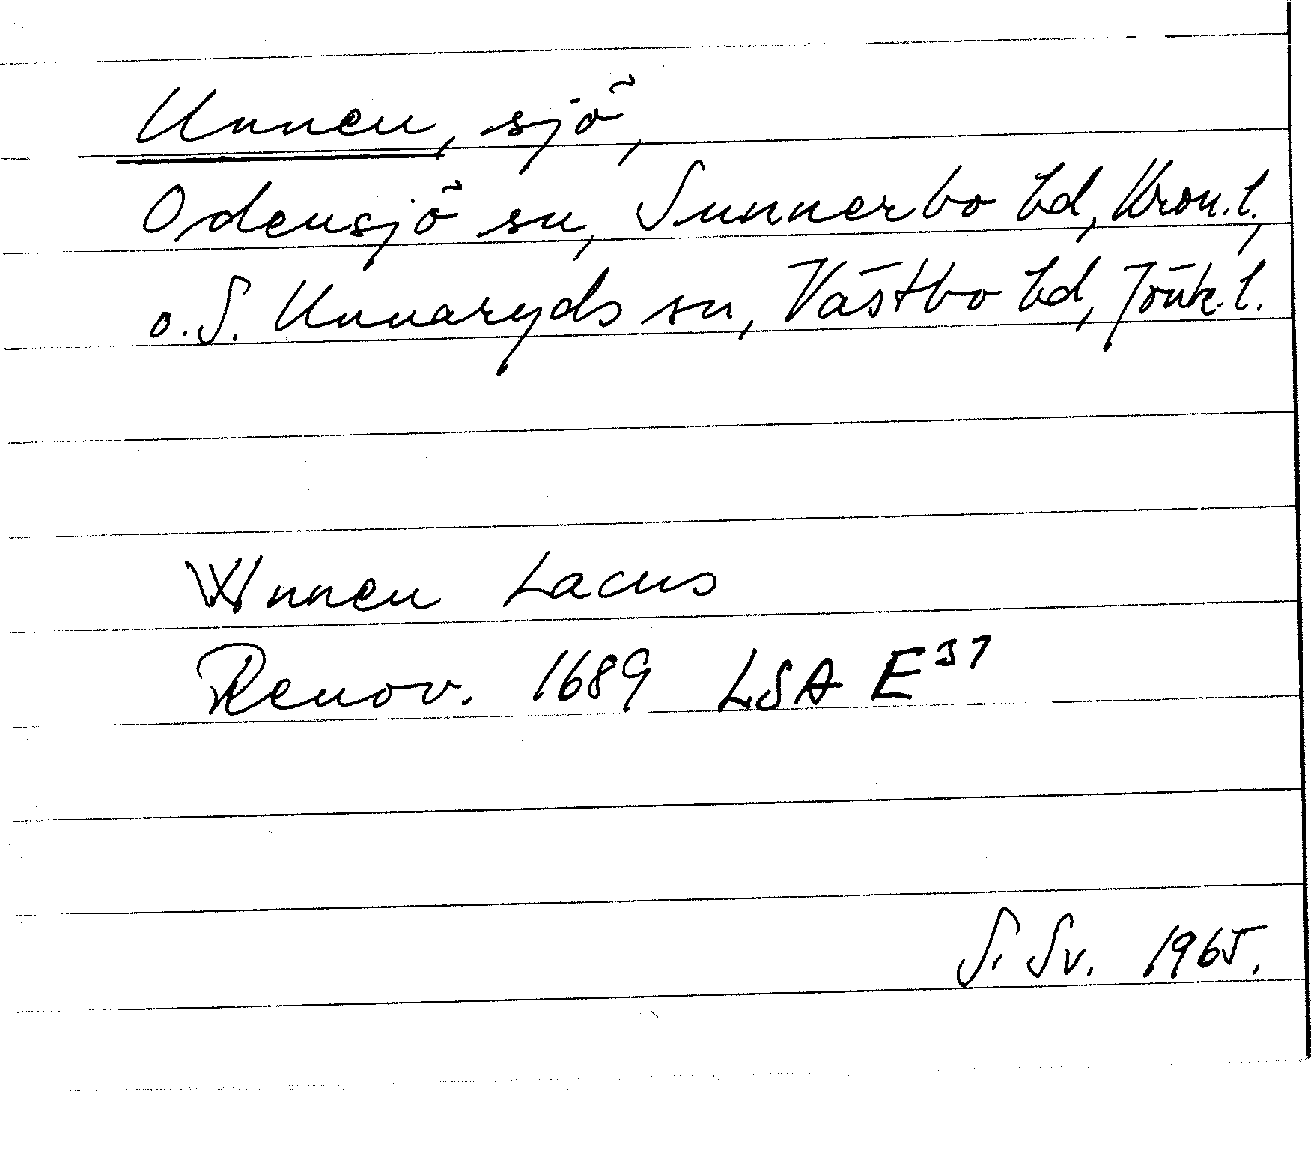 Unnen, sjö,
Odensjö sn, Sunnerbo hd, Kron.l.,
o.S. Unnaryds sn, Västbo hd, Jönk.l.
Wnnen Lacus
Renov. 1689 LSA E37
S. Sv. 1965.